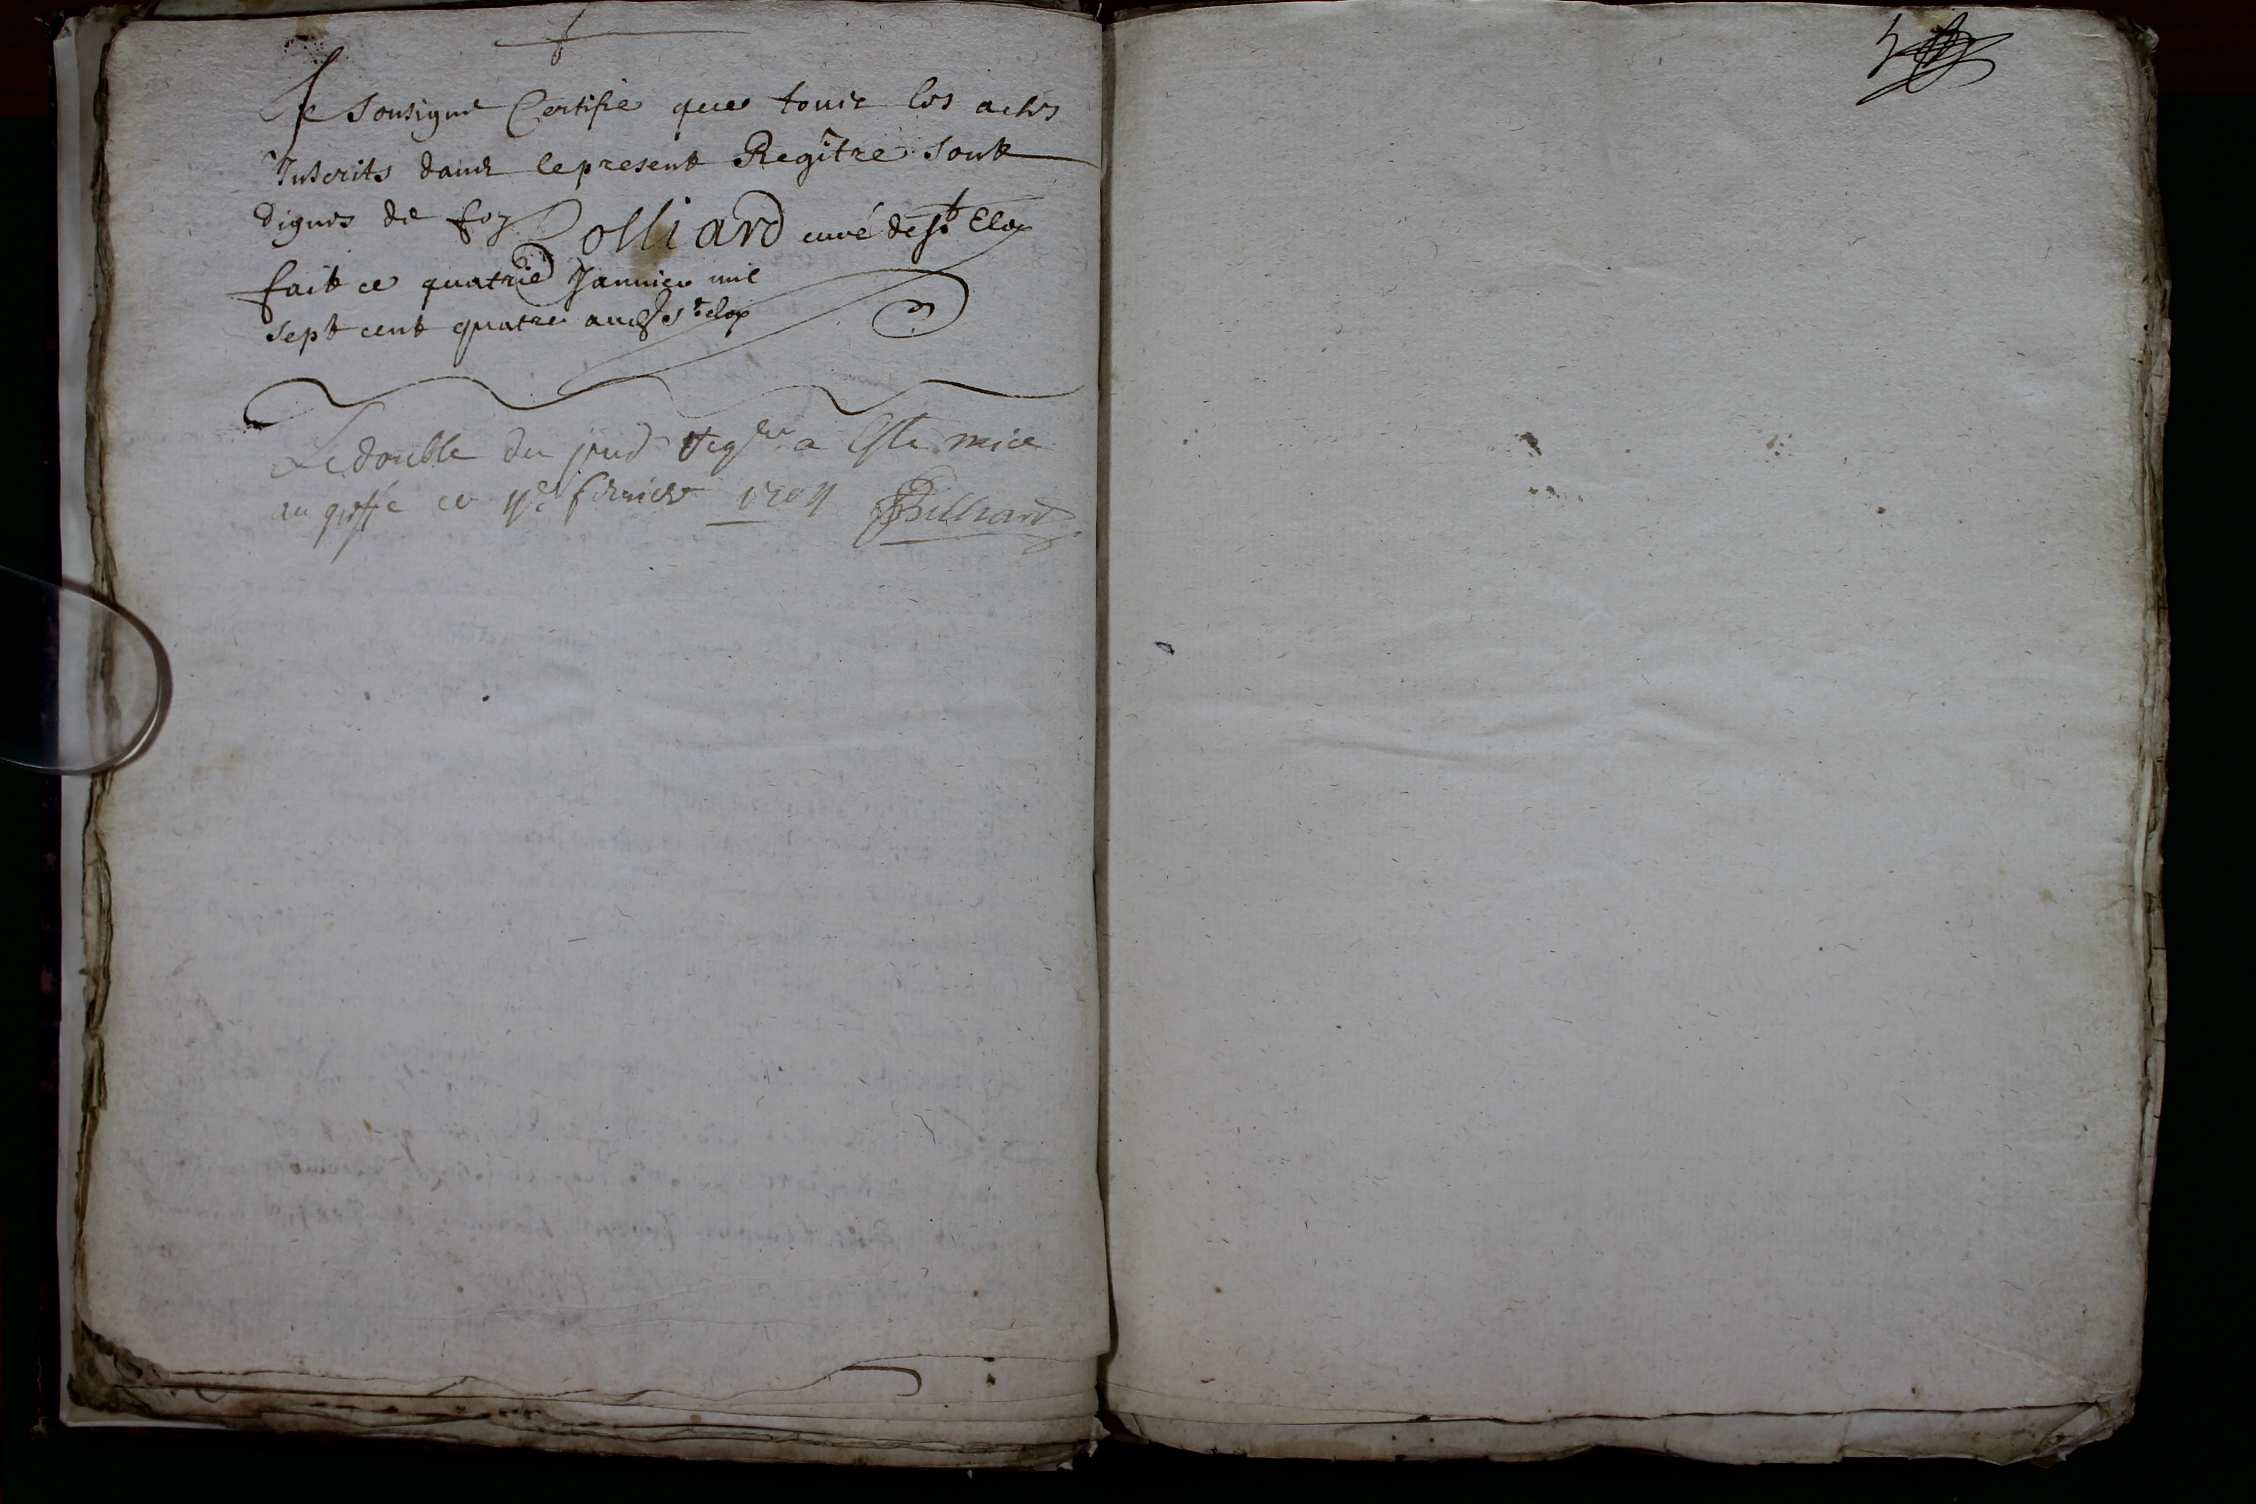 Je sousigné Certifie que tous les actes
Inscrits dans le present Regître sont
dignes de foy Colliard curé de st Eloy
fait ce quatrie Janvier mil
sept cent quatre aud St eloy
Le double du pnd Regre a Este mice
au greffe ce fevrier 1704 Billiard